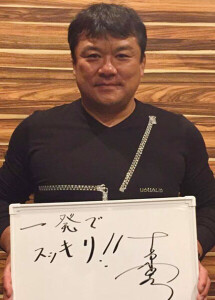 一発で
スッキリ!!